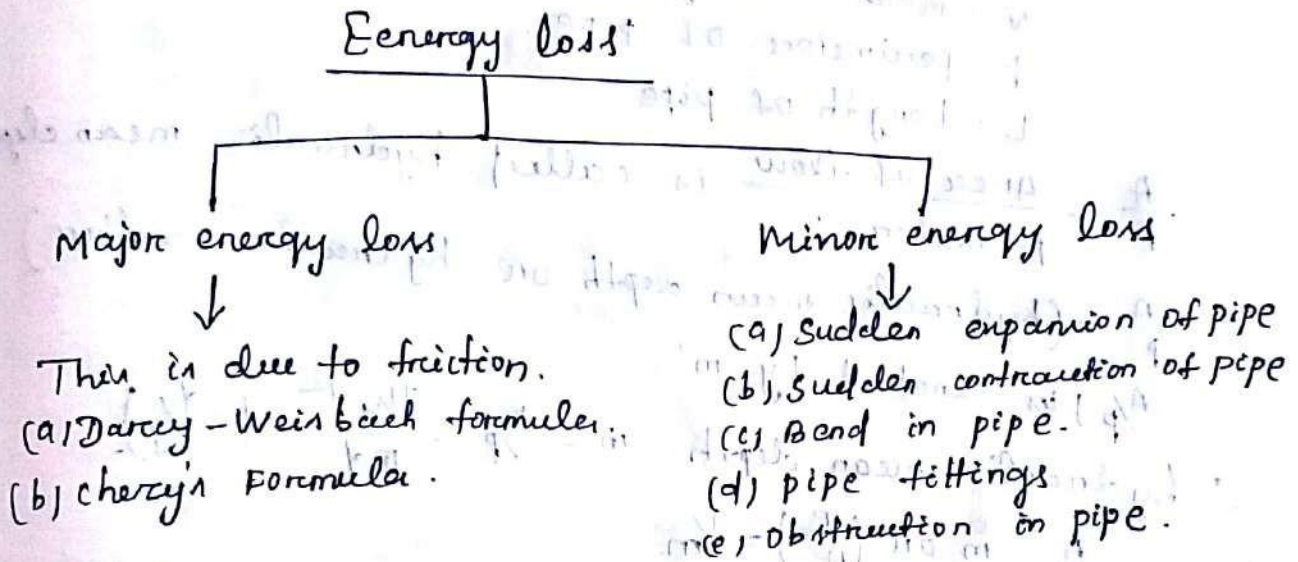 Eenergy loss
Major energy loss
Minor energy loss
This is due to friction.
(a) Darcy - Weisbach formula.
(b) chezy's Formula.
(a) Sudden expansion of pipe
(b) Sudden contraction of pipe
(c) Bend in pipe.
(d) pipe fittings
(e) obstruction in pipe.